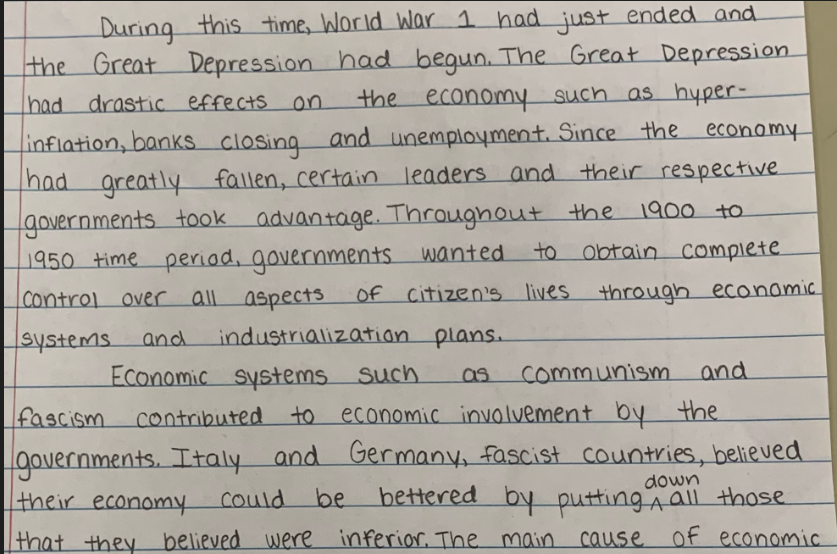 During this time, World War 1 had just ended and
the Great Depression had begun. The Great Depression
had drastic effects on the economy such as hyper-
inflation, banks closing and unemployment. Since the economy
had greatly fallen, certain leaders and their respective
governments took advantage. Throughout the 1900 to
1950 time period, governments wanted to obtain complete
control over all aspects of citizen's lives through economic
systems and industrialization plans.
Economic systems such as communism and
fascism contributed to economic involvement by the
governments. Italy and Germany, fascist countries, believed
their economy could be bettered by putting ^down all those
that they believed were inferior. The main cause of economic